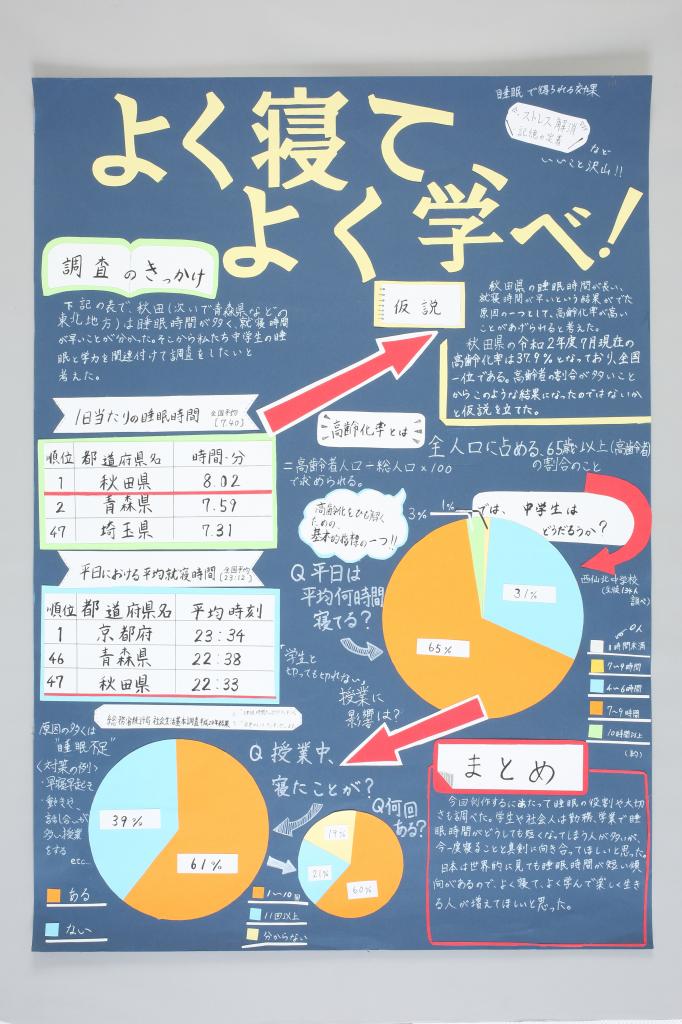 よく寝て、
よく学べ!
睡眠で得られる効果
ストレス解消
記憶の定着
など
いいこと沢山!!
調査のきっかけ
下記の表で、秋田(次いで青森県などの
東北地方)は睡眠時間が多く、就寝時間
が早いことが分かった。そこから私たち中学生の睡
眠と学力を関連付けて調査をしたいと
考えた。
仮説
秋田県の睡眠時間が長い、
就寝時間が早いという結果がでた
原因の一つとして、高齢化率が高い
ことがあげられると考えた。
秋田県の令和2年度7月現在の
高齢化率は37.9%となっており、全国
一位である。高齢者の割合が多いこと
からこのような結果になったのではないか
と仮説を立てた。
1日当たりの睡眠時間
全国平均
[7.40]
順位 都道府県名 時間・分
1 秋田県 8.02
2 青森県 7.59
47 埼玉県 7.31
平日における平均就寝時間
全国平均
[23:12]
順位 都道府県名 平均時刻
1 京都府 23:34
46 青森県 22:38
47 秋田県 22:33
高齢化率とは
全人口に占める、65歳以上(高齢者)
の割合のこと
=高齢者人口÷総人口×100
で求められる。
高齢化をひも解く
ための、
基本的指標の一つ!!
では、中学生は
どうだろうか?
西仙北中学校
Q 平日は
平均何時間
寝てる?
3%
1%
31%
65%
0人
1時間未満
7~9時間
4~6時間
7~9時間
10時間以上
(約)
「学生と
切っても切れない」
授業に
影響は?
総務省統計局 社会生活基本調査
Q 授業中、
寝たことが?
原因の多くは
"睡眠不足"
〈対策の例〉
・早寝早起き
・動きや、
話し合いが
多い授業
をする
etc...
39%
61%
ある
ない
Q何回
ある?
19%
21%
60%
1~10回
11回以上
分からない
まとめ
今回制作するにあたって睡眠の役割や大切
さも調べた。学生や社会人は勤務、学業で睡
眠時間がどうしても短くなってしまう人が多いが、
今一度寝ることと真剣に向き合ってほしいと思った。
日本は世界的に見ても睡眠時間が短い傾
向があるので、よく寝て、よく学んで楽しく生き
る人が増えてほしいと思った。